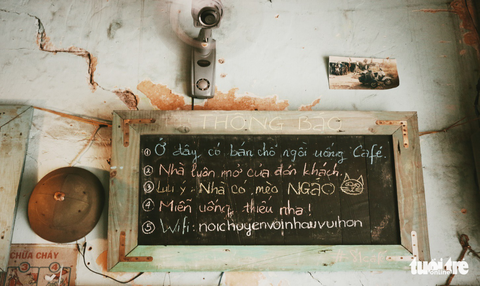 THÔNG BÁO
① Ở đây có bán chỗ ngồi uống Café.
② Nhà luôn mở cửa đón khách.
③ Lưu ý: Nhà có mèo NGÁO
④ Miễn uống thiếu nha!
⑤ Wifi: noichuyenvoinhauvuihon
CHỮA CHÁY
tuổi trẻ